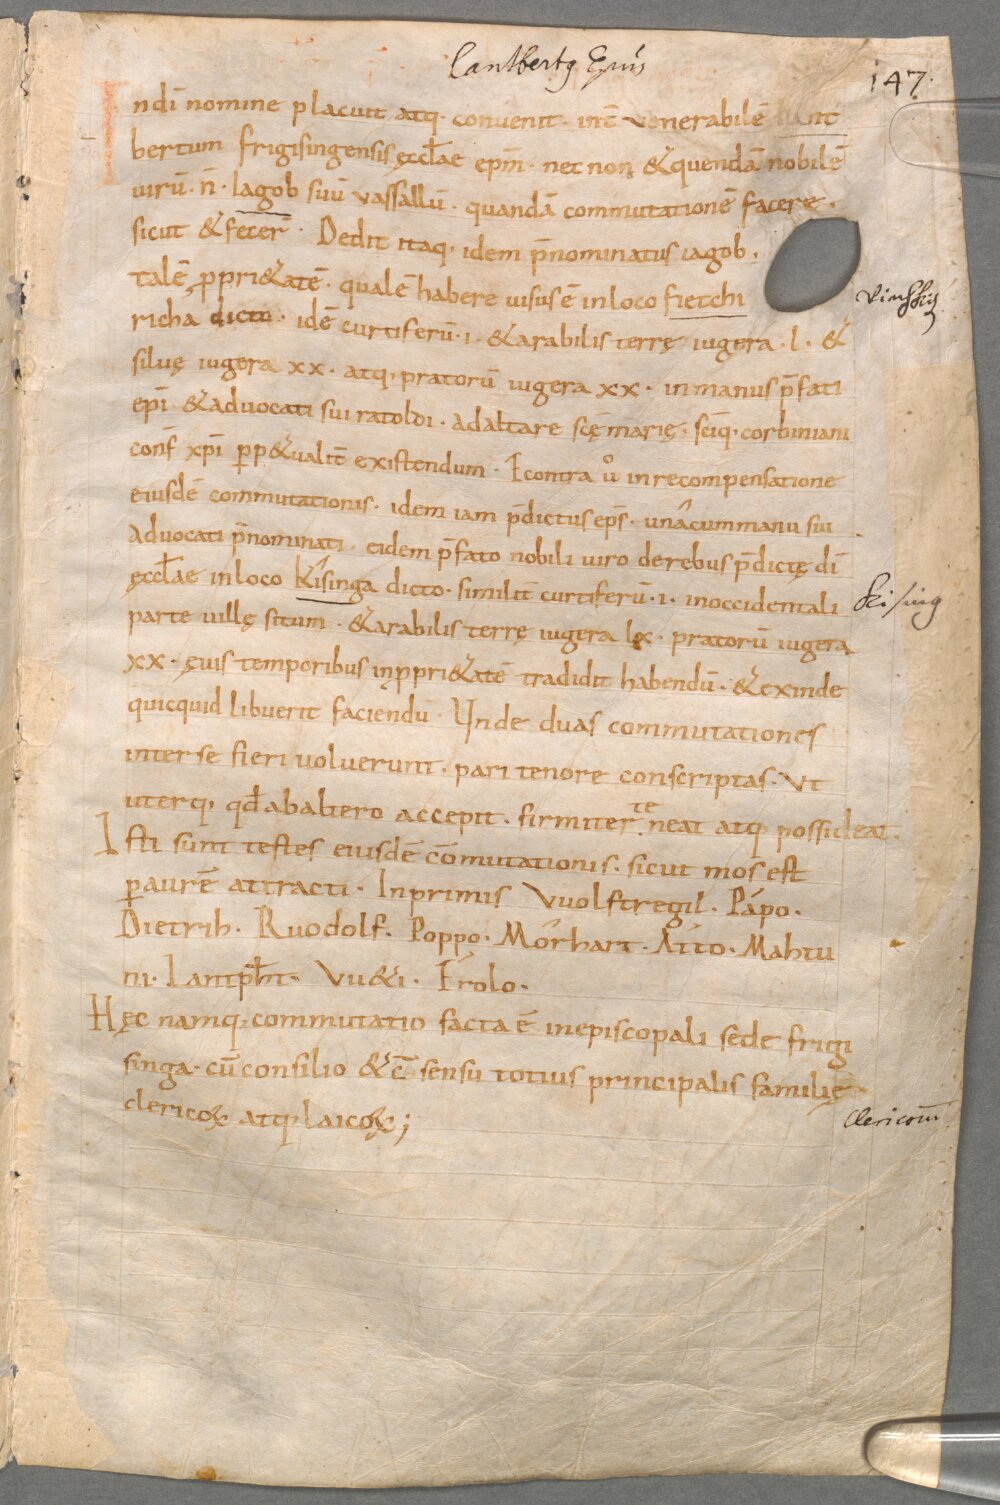 Lantbertꝯ Epūs
147.
In dī nomine placuit atq· convenit· int̄ venerabilē
bertum frigisingensis ęccłae epm̄· nec non &quendā nobilē
uirū· n̄· Iagob suū vassallū· quandā commutationē facere·
sicut &fecer̄· Dedit itaq· idem p̄nominatus iagob·
talē ꝓpri&atē· qualē habere uisus ē in loco fietchi
richa dicto· idē curtiferū· i· &arabilis terrę iugera· l· &
siluę iugera xx· atq· pratorū iugera xx· in manus p̄fati
epī &advocati sui ratoldi· Ad altare scę̄ marię· scīq· corbiniani
conf̄ xp̄i ꝑp&ualit̄ existendum· Econtra uͦ in recompensatione
eiusdē commutationis· idem iam p̄dictus ep̄s· unâ cum manu sui
Advocati p̄nominati· eidem p̄fato nobili uiro de rebus p̄dictę dī
ęccłae in loco Kisinga dicto· similit̄ curtiferū· i· in occidentali
parte villę situm· &arabilis terrę iugera lx· pratorū iugera
xx· ęuis temporibus in ꝓpri&atē tradidit habendū· &exinde
quicquid libuerit faciendū· Unde duas commutationes
inter se fieri voluerunt· pari tenore conscriptas· Ut
uterq· qd̄ ab altero accepit· firmiter teneat atq· possideat·
Isti sunt testes eiusdē cōmutationis· sicut mos est
ꝑ aurē attracti· Inprimis Vuolftregil· Pápo·
Dietrih· Ruodolf· Poppo· Mórhart· Átto· Mahtu
ni· Lantpħt· Vu&i· Érolo·
Hęc namq· commutatio facta ē in episcopali sede frigi
singa· cū consilio &c̄ sensu totius principalis familię
clericoꝝ atq· laicoꝝ;
Kising
clericorū